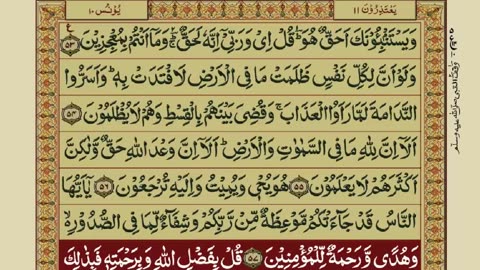 يَعۡتَذِرُوۡنَ ١١
يُوۡنُس ١٠
وَيَسۡتَنۡۢبِـُٔوۡنَكَ اَحَقٌّ هُوَ ؔؕ قُلۡ اِىۡ وَرَبِّىۡۤ اِنَّهٗ لَحَقٌّ ؔؕ وَمَاۤ اَنۡتُمۡ بِمُعۡجِزِيۡنَ ﴿۵۳﴾ ع
وَلَوۡ اَنَّ لِكُلِّ نَفۡسٍ ظَلَمَتۡ مَا فِى الۡاَرۡضِ لَافۡتَدَتۡ بِهٖ ؕ وَاَسَرُّوا
النَّدَامَةَ لَمَّا رَاَوُا الۡعَذَابَ ۚ وَقُضِىَ بَيۡنَهُمۡ بِالۡقِسۡطِ وَهُمۡ لَا يُظۡلَمُوۡنَ ﴿۵۴﴾
اَلَاۤ اِنَّ لِلّٰهِ مَا فِى السَّمٰوٰتِ وَالۡاَرۡضِ ؕ اَلَاۤ اِنَّ وَعۡدَ اللّٰهِ حَقٌّ وَّلٰـكِنَّ
اَكۡثَرَهُمۡ لَا يَعۡلَمُوۡنَ ﴿۵۵﴾ هُوَ يُحۡىٖ وَيُمِيۡتُ وَاِلَيۡهِ تُرۡجَعُوۡنَ ﴿۵۶﴾ يٰۤاَيُّهَا
النَّاسُ قَدۡ جَآءَتۡكُمۡ مَّوۡعِظَةٌ مِّنۡ رَّبِّكُمۡ وَشِفَآءٌ لِّمَا فِى الصُّدُوۡرِ ۙ
وَهُدًى وَّرَحۡمَةٌ لِّلۡمُؤۡمِنِيۡنَ ﴿۵۷﴾ قُلۡ بِفَضۡلِ اللّٰهِ وَبِرَحۡمَتِهٖ فَبِذٰلِكَ